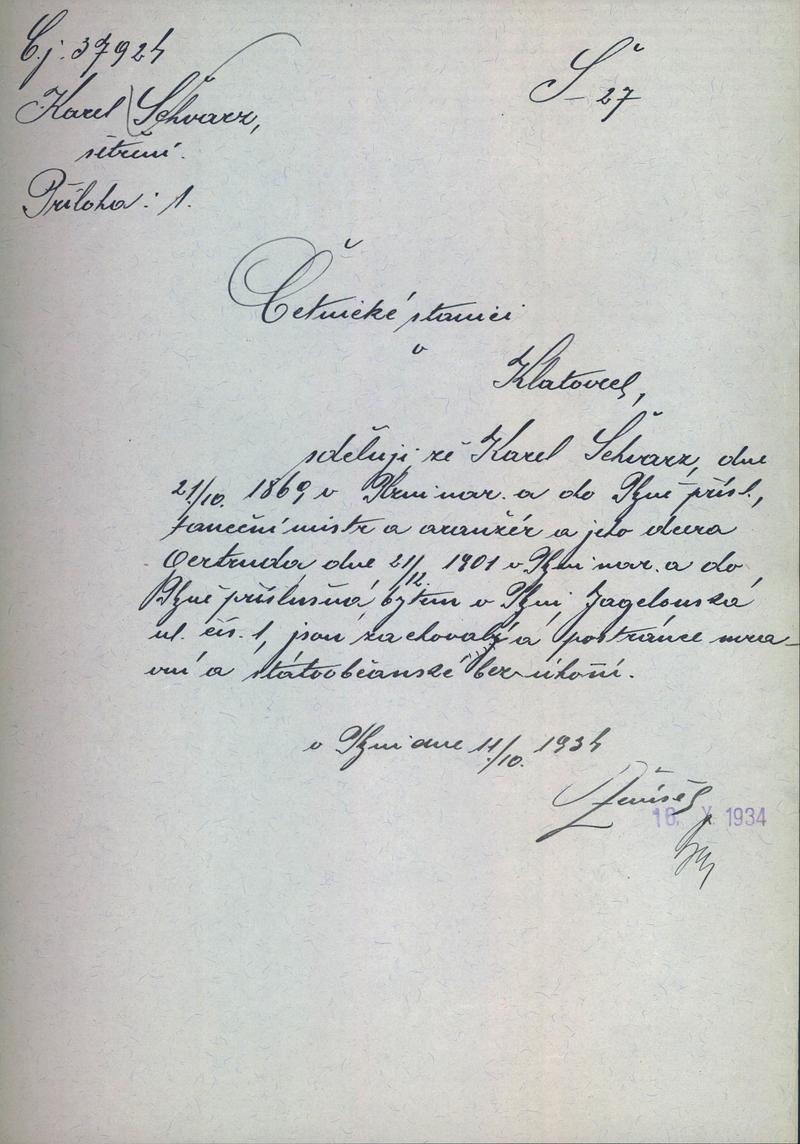 Č.j. 37924
Š 27
Karel Schvarz,
šetření.
Příloha: 1.
Četnické stanici
v
Klatovech,
sděluji že Karel Schvarz, dne
21./10. 1869 v Plzni nar. a do Plzně přísl.,
taneční mistr a aranžér a jeho dcera
Gertruda, dne 21./12. 1901 v Plzni nar. a do
Plzně příslušná bytem v Plzni, Jagelonská
ul. čís. 1, jsou zachovalý a po stránce mra-
vní a státoobčanské bez úhoní.
v Plzni dne 11./10. 1934
16. X. 1934